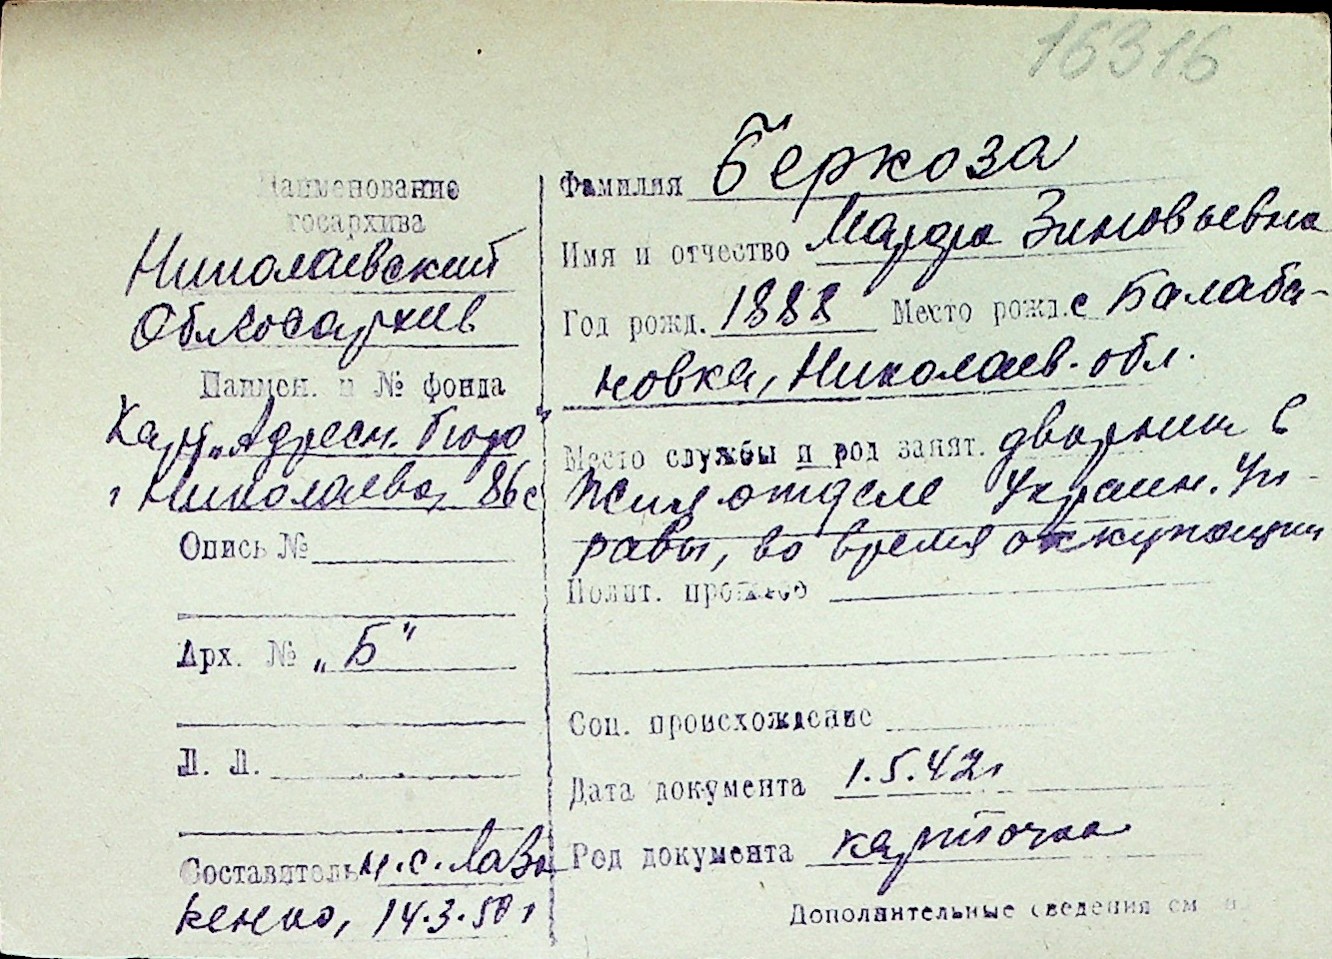 16316
Наименование
госархива
Николаевский
Облгосархив
Наимен. и № фонда
Карт. „Адресн. бюро"
г Николаева, 86с
Опись №
Арх. № „Б"
Л. Л.
Составитель н.с. Лаза
кенко, 14.3.50г
Фамилия Беркоза
Имя и отчество Марфа Зиновьевна
Год рожд. 1888 Место рожд. с Балаба-
новка, Николаев. обл.
Место службы и род занят. дворник в
Жилотделе Украин. Уп-
равы, во время оккупации
Полит. прошлое
Соц. происхождение
Дата документа 1.5.42г
Род документа карточка
Дополнительные сведения см